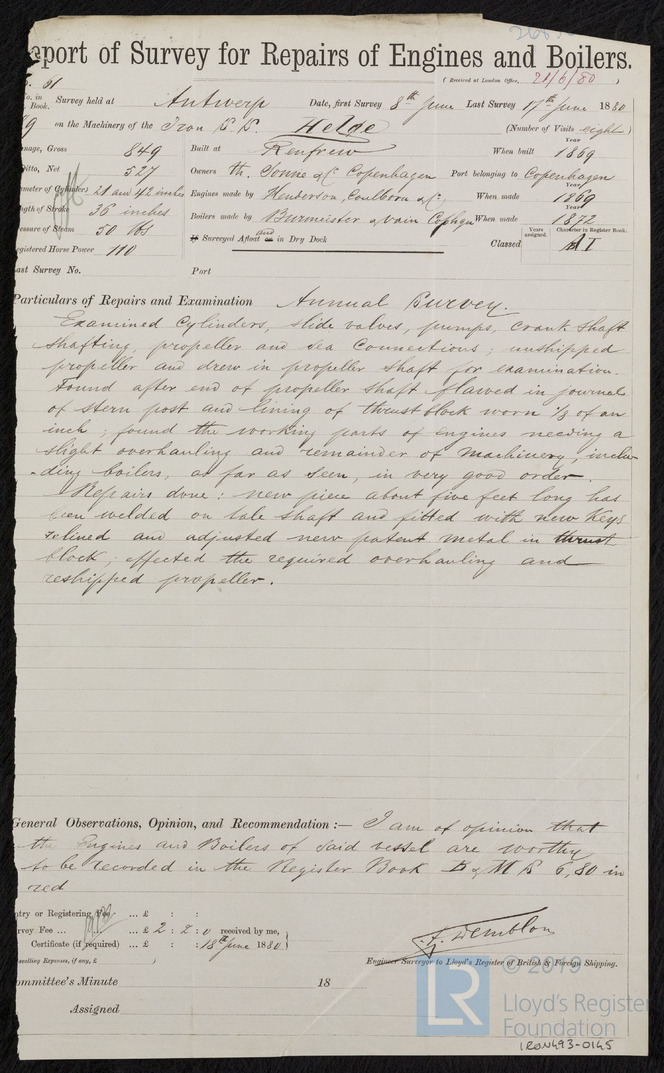 eport of Survey for Repairs of Engines and Boilers.
(Received at London Office, 21/6/80 )
61
o. in Book. Survey held at Antwerp Date, first Survey 8th June Last Survey 17th June 1880
9 on the Machinery of the Iron S.S. Helge (Number of Visits eight)
nnage, Gross 849 Built at Renfrew When built Year 1869
itto, Net 527 Owners Th. Sonne & Co Copenhagen Port belonging to Copenhagen
meter of Cylinders 21 and 42 inches Engines made by Henderson, Coulborn & Co When made Year 1869
gth of Stroke 36 inches
essure of Steam 50 lbs Boilers made by Burmeister & Wain Cophgn When made Year 1872
egistered Horse Power 110 If Surveyed Afloat and or in Dry Dock Classed Years assigned. Character in Register Book. A I
ast Survey No. Port
Particulars of Repairs and Examination Annual Survey.
Examined Cylinders, slide valves, pumps, crank shaft
shafting, propeller and sea connections; unshipped
propeller and drew in propeller shaft for examination.
Found after end of propeller shaft flawed in journal
of stern post and lining of thrust block worn 1/3 of an
inch; found the working parts of engines needing a
slight overhauling and remainder of machinery, inclu-
-ding boilers, as far as seen, in very good order.
Repairs done: new piece about five feet long has
been welded on tale shaft and fitted with new keys
relined and adjusted new patent metal in thrust
block; effected the required overhauling and
reshipped propeller.
General Observations, Opinion, and Recommendation:— I am of opinion that
the Engines and Boilers of said vessel are worthy
to be recorded in the Register Book B & M S 6,80 in
red
ntry or Registering Fee ... £ : :
rvey Fee ... ... £ 2 : 2 : 0 received by me,
Certificate (if required) ... £ : : 18th June 1880
avelling Expenses, if any, £ )
Engineer Surveyor to Lloyd's Register of British & Foreign Shipping.
ommittee's Minute 18
Assigned
LR © 2019
Lloyd's Register
Foundation
IRON493-0145